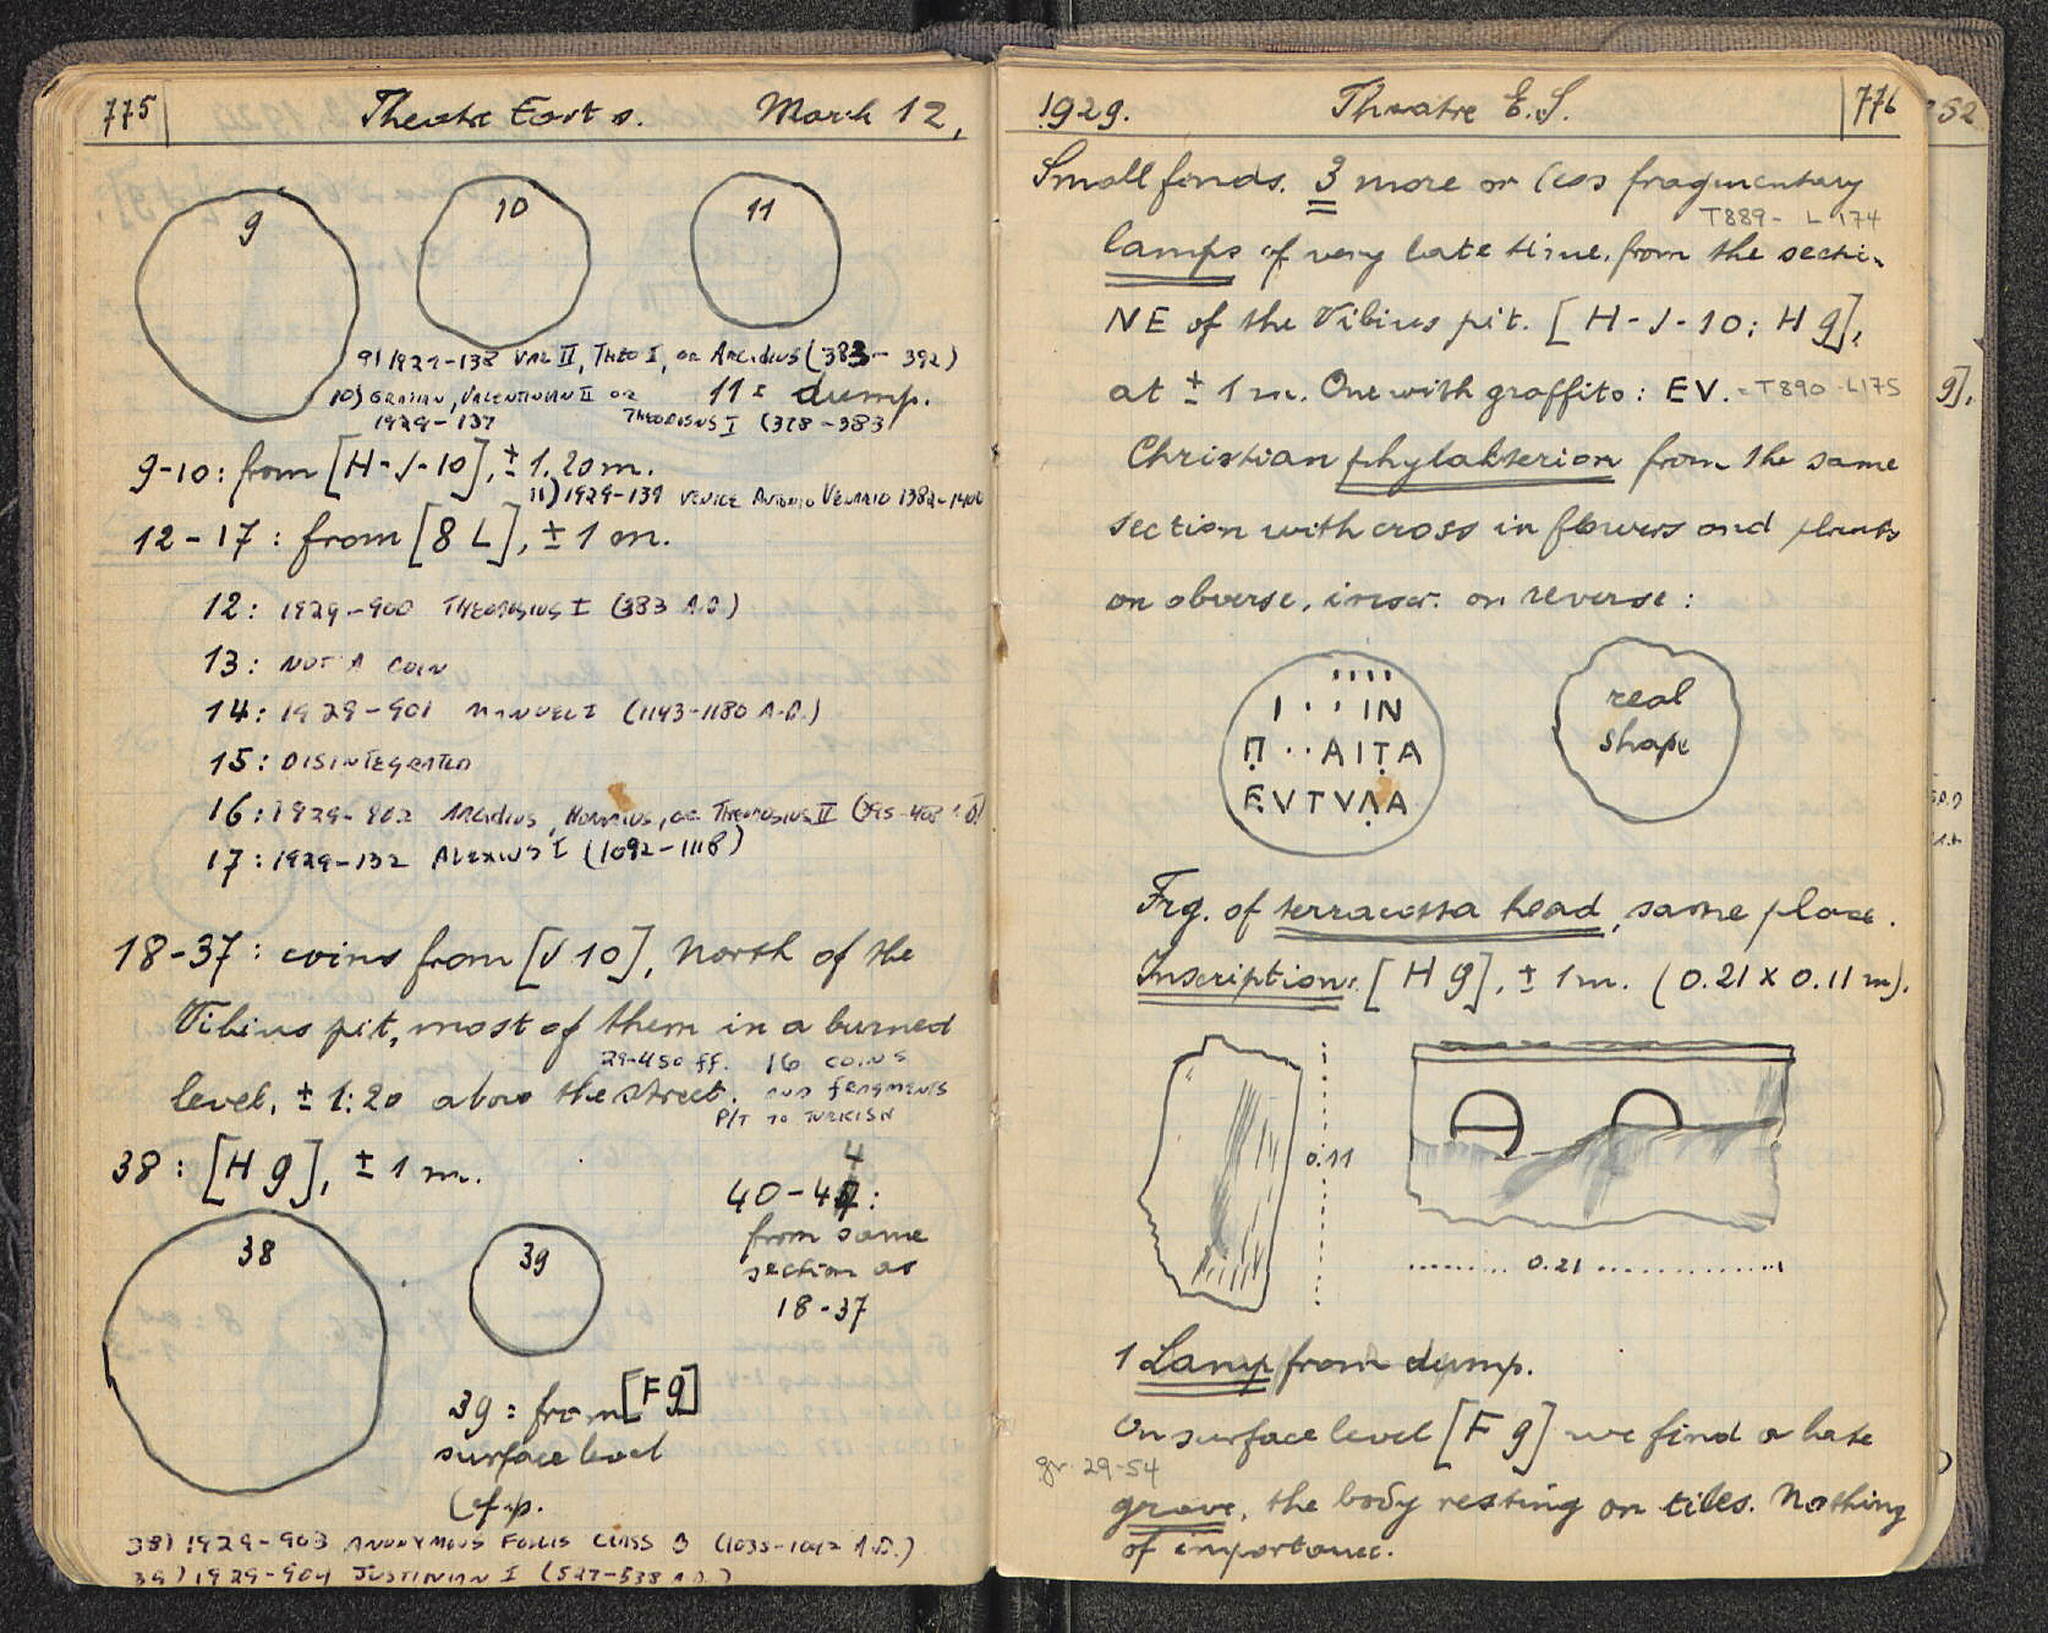 775 Theatre East s. March 12,
9
10
11
9) 1929-138 VAL II, THEO I, OR ARCADIUS (383-392)
10) GRATIAN, VALENTINIAN II OR
11: dump.
1929-137 THEODOSIUS I (378-383
9-10: from [H-J-10], ± 1.20 m.
11) 1929-139 VENICE ANTONIO VENARIO 1382-1400
12-17: from [8 L], ± 1 m.
12: 1929-900 THEODOSIUS I (383 A.D.)
13: NOT A COIN
14: 1929-901 MANUEL I (1143-1180 A.D.)
15: DISINTEGRATED
16: 1929-902 ARCADIUS, HONORIUS, OR THEODOSIUS II (395-408 A.D)
17: 1929-132 ALEXIUS I (1092-1118)
18-37: coins from [J 10], North of the
Vibius pit, most of them in a burned
29-450 ff. 16 COINS
level, ± 1:20 above the street. AND FRAGMENTS
P/T TO TURKISH
38: [H 9], ± 1 m.
4
40-4
from same
section as
18-37
38
39
39: from [F 9]
surface level
(cf. p.
38) 1929-903 ANONYMOUS FOLLIS CLASS B (1035-1042 A.D.)
39) 1929-904 JUSTINIAN I (527-538 A.D.)
1929. Theatre E.S. 776
Small finds. 3 more or less fragmentary
T889- L 174
lamps of very late time, from the section
NE of the Vibius pit. [H-J-10; H 9],
at ± 1 m. One with graffito: EV. - T890 - L175
Christian phylakterion from the same
section with cross in flowers and plants
on obverse, inscr. on reverse:
I · · IN
Π · · AITA
EVTVΛA
real
shape
Frg. of terracotta head, same place.
Inscription: [H 9], ± 1 m. (0.21 x 0.11 m).
0.11
0.21
1 Lamp from dump.
On surface level [F 9] we find a late
gr. 29-54
grave, the body resting on tiles. Nothing
of importance.
52
9].